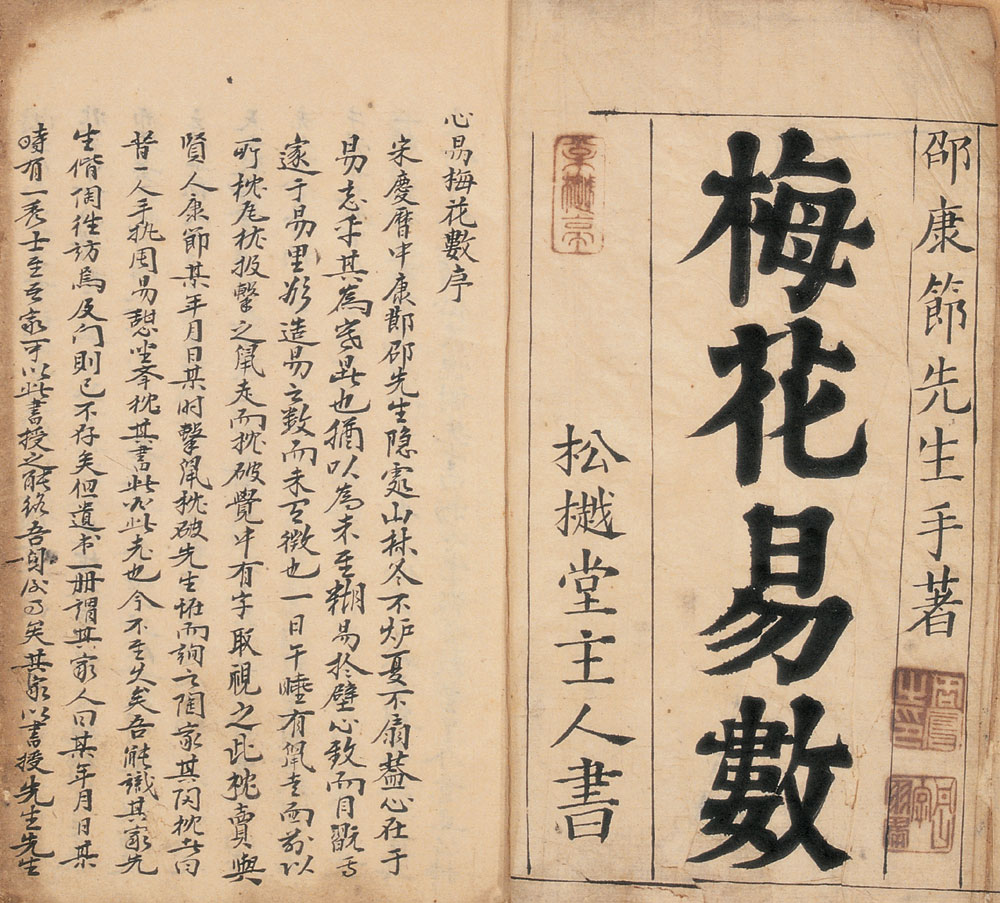 邵康節先生手著
梅花易數
松樾堂主人書
心易梅花數序
宋慶曆中康節邵先生隐處山林冬不炉夏不扇蓋心在于
易忘乎其為寒暑也猶以為未至糊易於壁心致而目翫焉
邃于易里欲造易之数而未有徵也一日午睡有鼠走而前以
所枕瓦枕投擊之鼠走而枕破覺中有字取視之此枕賣與
賢人康節某年月日某时擊鼠枕破先生怪而詢之陶家其陶枕者曰
昔一人手执周易憩坐举枕其書此必此老也今不至久矣吾能識其家先
生偕陶徃訪焉及门則已不存矣但遺书一册謂其家人曰某年月日某
時有一秀士至吾家可以此書授之能終吾身後事矣其家以書授先生先生